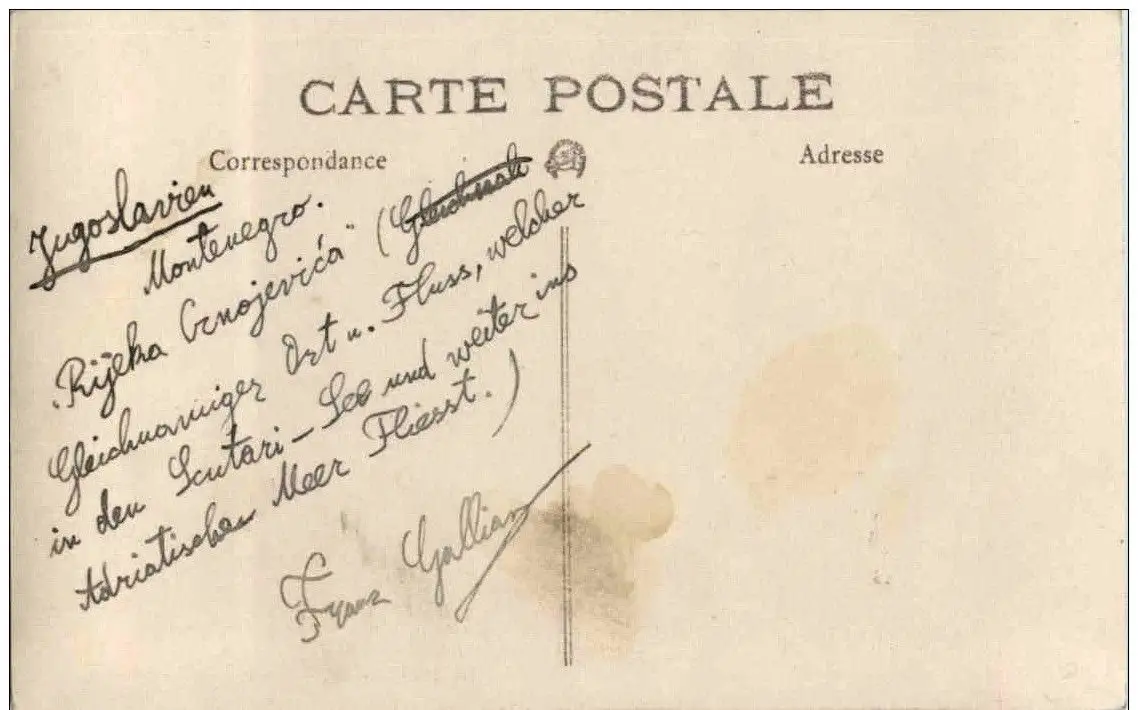 CARTE POSTALE
Correspondance
Adresse
Jugoslavien
Montenegro.
"Rijeka Crnojevića" (
Gleichnamiger Ort u. Fluss, welcher
in den Scutari-See und weiter ins
Adriatischen Meer Fliesst.)
Franz Gallian